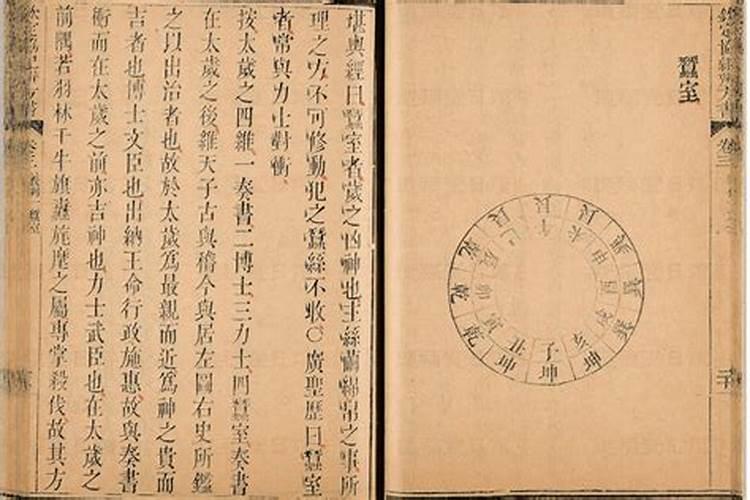 欽定協紀辨方書 卷三
蠶室
子 丑 寅 卯 辰 巳 午 未 申 酉 戌 亥
坤 坤 乾 乾 乾 艮 艮 艮 巽 巽 巽 坤
堪輿經曰蠶室者歲之凶神也主絲繭綿帛之事所
理之方不可修動犯之蠶絲不收○廣聖歷曰蠶室
者常與力士對衝
按太歲之四維一奏書二博士三力士四蠶室奏書
在太歲之後維天子古與稽今與居左圖右史所鑑
之以出治者也故於太歲爲最親而近爲神之貴而
吉者也博士文臣也出納王命行政施惠故與奏書
衝而在太歲之前亦吉神也力士武臣也在太歲之
前隅若羽林千牛旗纛旄麾之屬專掌殺伐故其方